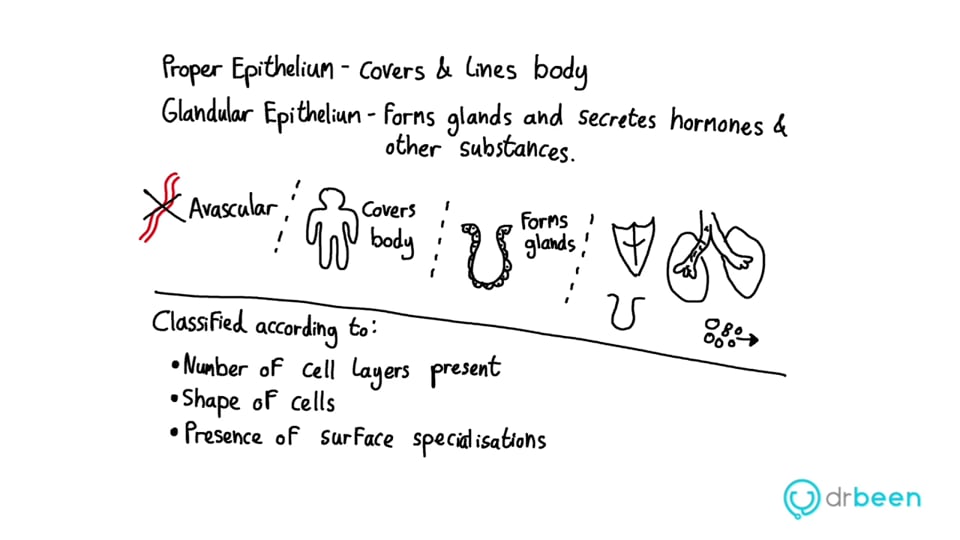 Proper Epithelium - Covers & Lines body
Glandular Epithelium - Forms glands and secretes hormones &
other substances.
Avascular
Covers
body
Forms
glands
Classified according to:
• Number of cell layers present
• Shape of cells
• Presence of surface specialisations
drbeen